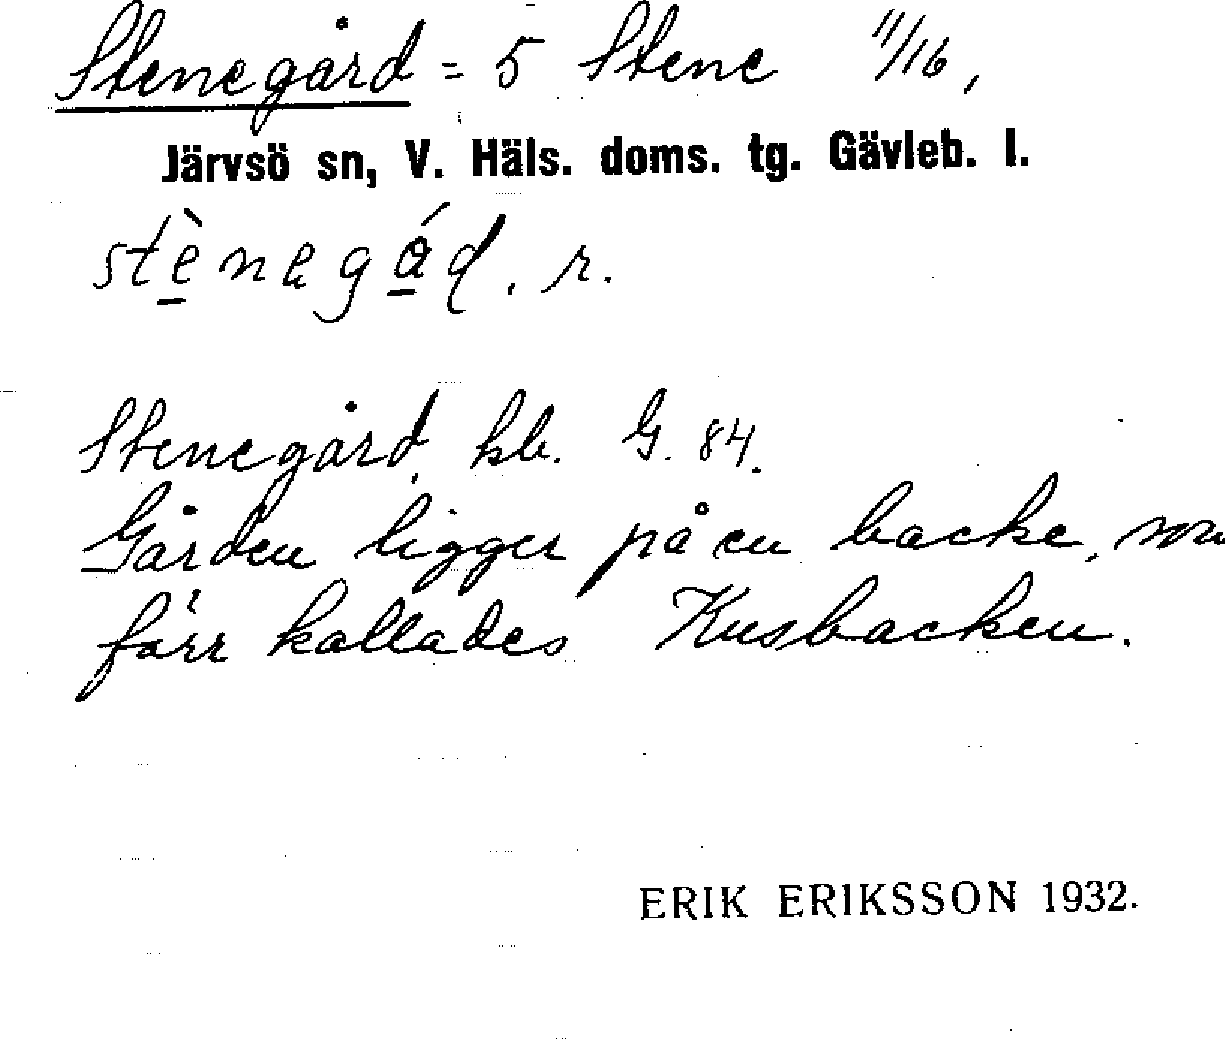 Stenegård = 5 Stene 11/16,
Järvsö sn, V. Häls. doms. tg. Gävleb. l.
stènegád. r.
Stenegård, kb. G. 84.
Gården ligger på en backe, som
förr kallades Kusbacken.
ERIK ERIKSSON 1932.